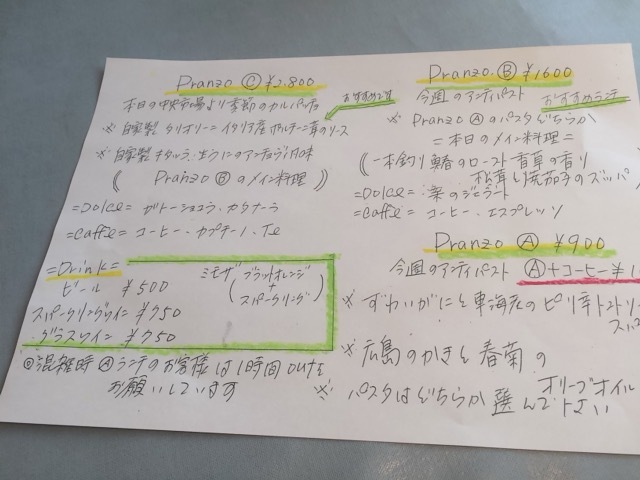 Pranzo Ⓒ ¥2.800
本日の中央市場より季節のカルパッチョ
おすすめです
※ 自家製 タリオリーニ イタリア産ポルチーニ茸のソース
※ 自家製 キタッラ 生うにのアンチョヴィ風味
(( Pranzo Ⓑ のメイン料理 ))
=Dolce= ガトーショコラ・カタナーラ
=Caffe= コーヒー、カプチーノ、Te
=Drink=
ビール ¥500
スパークリングワイン ¥750
グラスワイン ¥750
ミモザ ( ブラッドオレンジ + スパークリング )
◎混雑時 Ⓐランチのお客様は1時間outを
お願いしています
Pranzo. Ⓑ ¥1600
今週のアンティパスト おすすめランチ
※ Pranzo Ⓐ のパスタどちらか
= 本日のメイン料理 =
( 一本釣り 鰆のロースト 香草の香り
松茸と焼茄子のズッパ
=Dolce= 栗のジェラート
=Caffe= コーヒー、エスプレッソ
Pranzo Ⓐ ¥900
今週のアンティパスト Ⓐ+コーヒー ¥1.
※ ずわいがにと東海老のピリ辛トントリー
スパ
※ 広島のかきと春菊の
オリーブオイル
※ パスタはどちらか選んで下さい